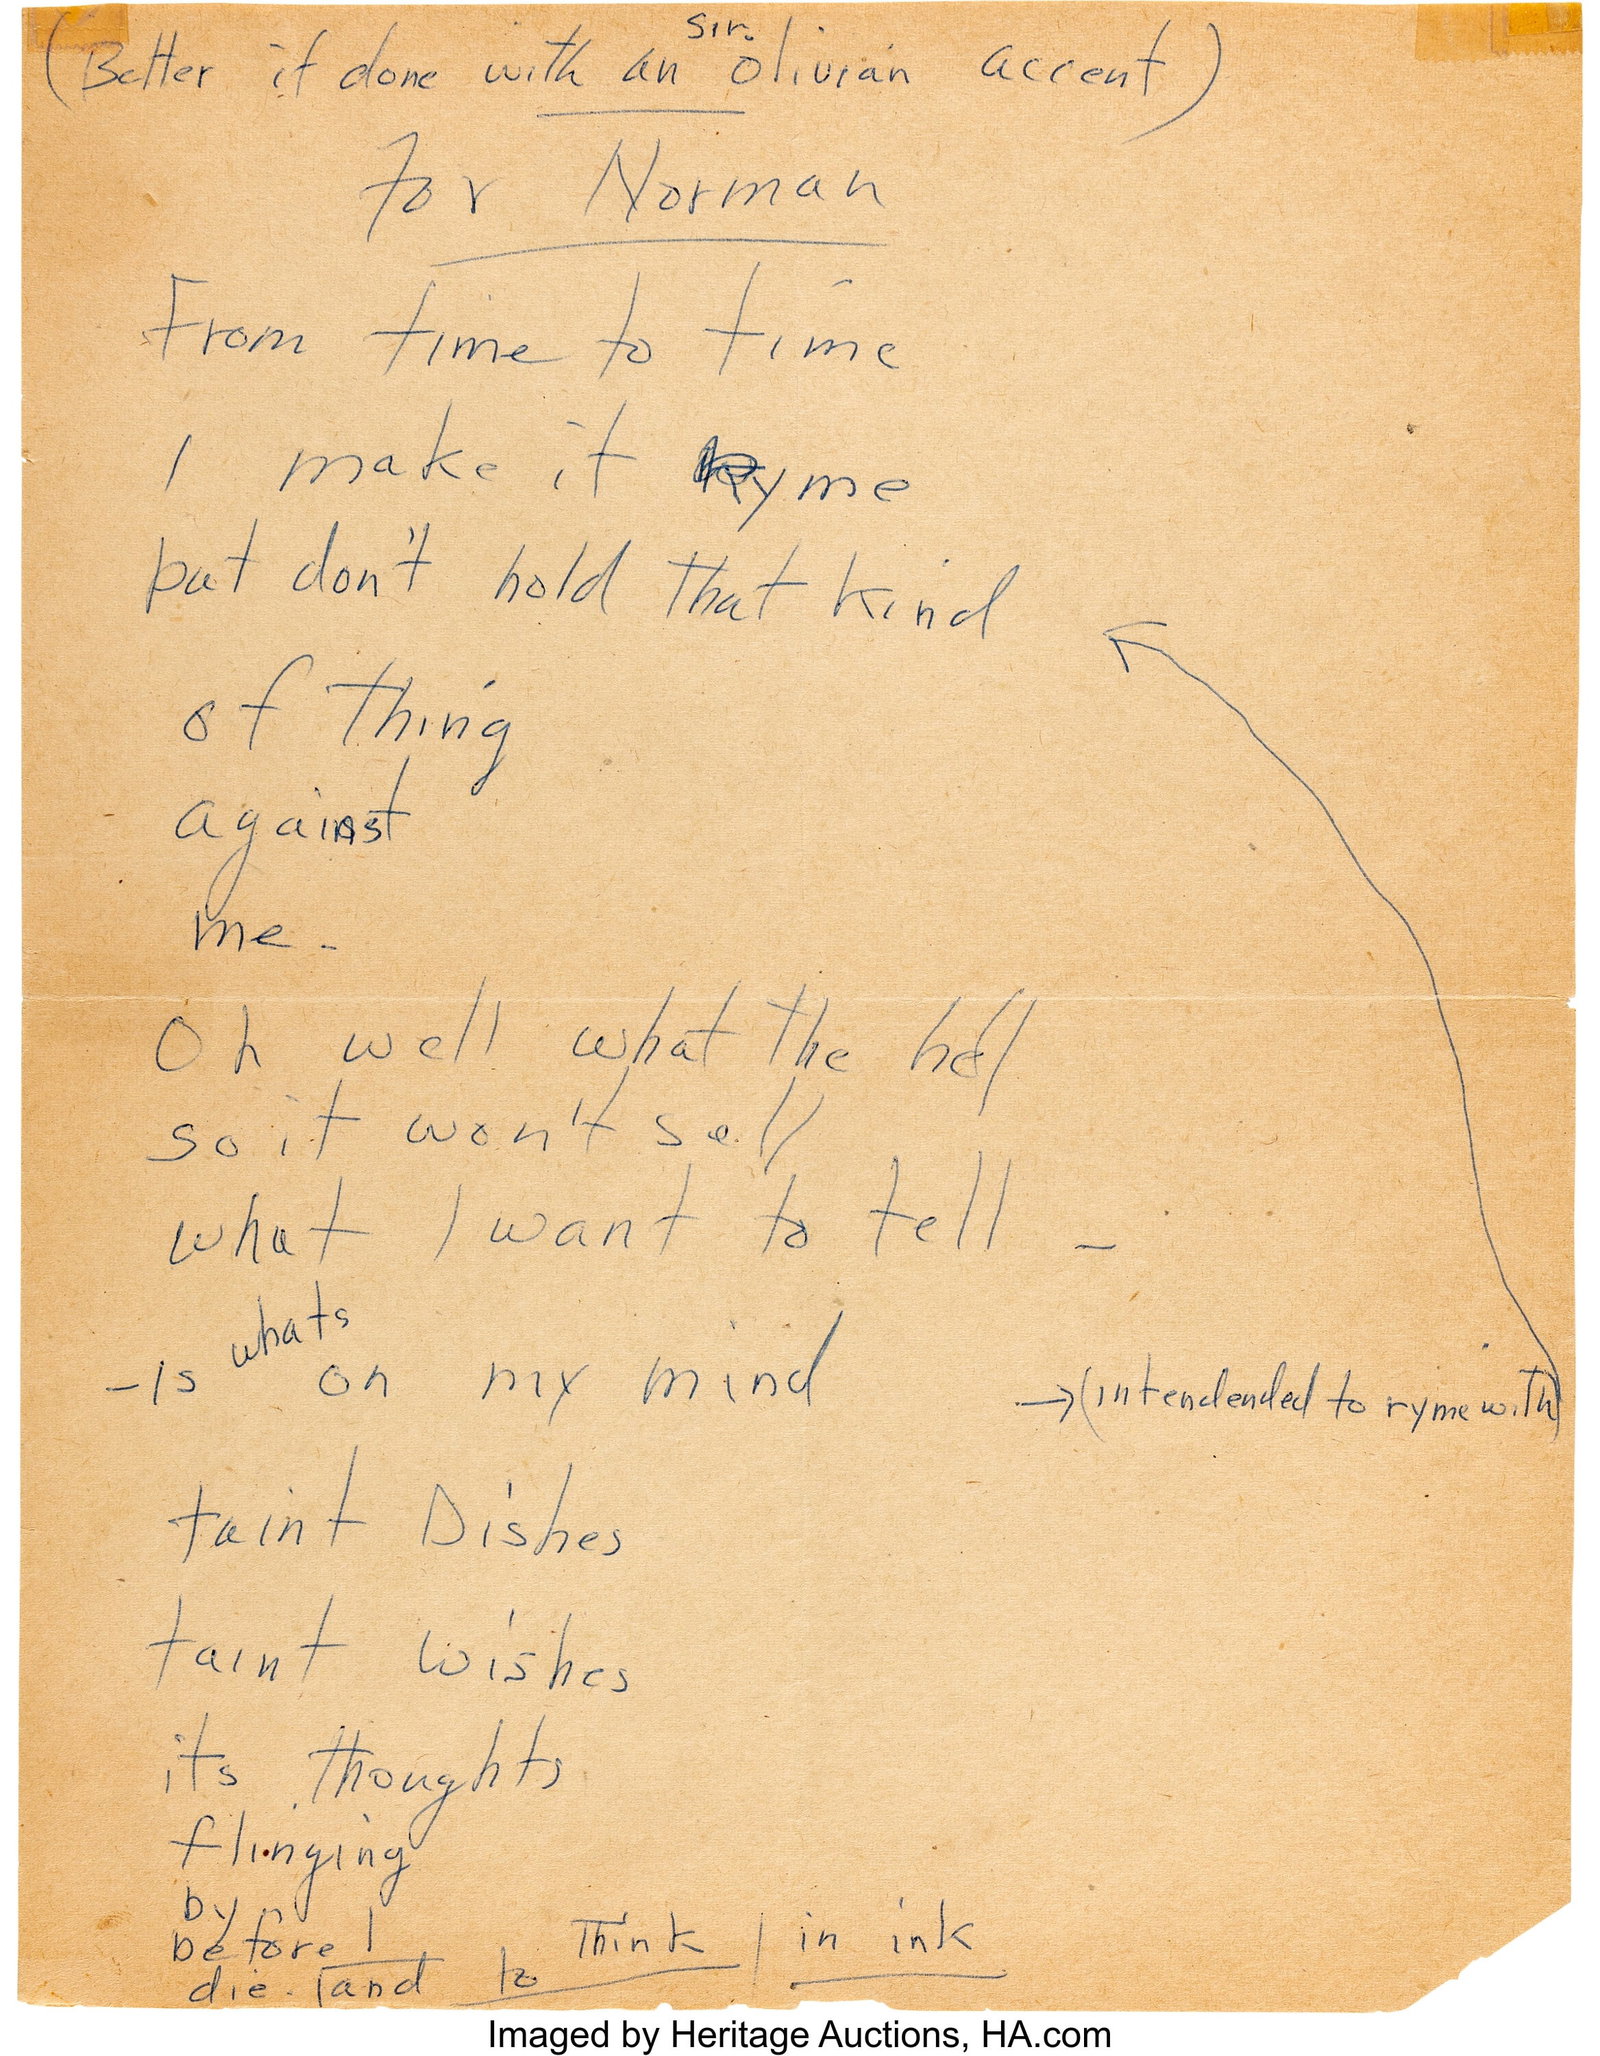 (Better if done with an Sir. Olivian accent)
For Norman
From time to time
I make it Ryme
but don't hold that kind
of thing
against
me -
Oh well what the hell
so it won't sell
what I want to tell -
- Is whats on my mind → (intendended to ryme with)
taint Dishes
taint wishes
its thoughts
flinging
by
before I
die. and to Think in ink
Imaged by Heritage Auctions, HA.com